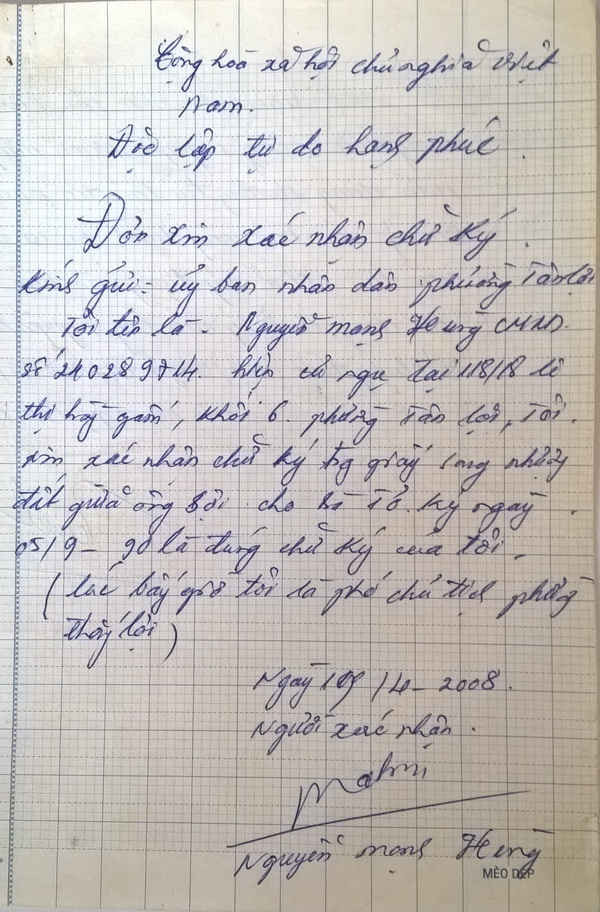 Cộng hoà xã hội chủ nghĩa Việt
Nam.
Độc lập tự do hạnh phúc.
Đơn xin xác nhận chữ ký.
Kính gửi: Uỷ ban nhân dân phường Tân lợi
Tôi tên là. Nguyễn mạnh Hùng CMND.
số 240289714. hiện cư ngụ tại 118/18 lê
thị hồng gấm, khối 6. phường Tân lợi, Tôi.
xin xác nhận chữ ký trong giấy sang nhượng
đất giữa ông Bội cho bà Tô. Ký ngày
05/9-90 là đúng chữ ký của tôi.
(lúc bấy giờ tôi là phó chủ tịch phường
thống lợi)
Ngày /4-2008.
Người xác nhận.
Nguyễn mạnh Hùng
MÈO DẸP